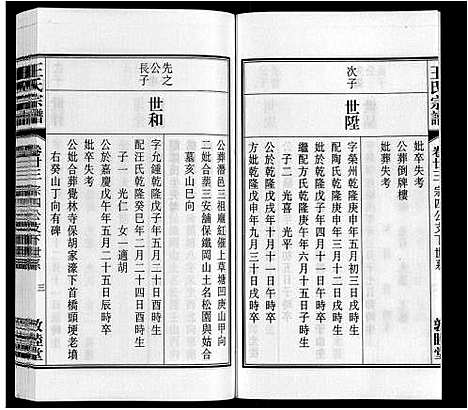 王氏宗譜
卷廿三 宗四公支下世系
敦睦堂
次子
世陞
字榮州乾隆庚申年五月初三日戌時生
配陶氏乾隆庚申年三月二十日戌時生
繼配方氏乾隆庚午年六月十五日子時生
子二 光喜 光平
公卒乾隆戊子年四月十一日午時
方妣卒乾隆戊申年九月三十日戌時
公葬倒牌樓
妣葬失考
先之公長子
世和
公葬潛邑三祖廟紅催上草塘凹庚山甲向
二妣合葬三安舖保鐵岡山土名松園與姑合
墓亥山巳向
字允鍾乾隆戊子年五月二十日酉時生
配汪氏乾隆癸巳年二月二十四日酉時生
子一 光仁 女一適胡
公卒嘉慶戊午年五月二十五日辰時卒
妣卒失考
公妣合葬覺林寺保胡家濠下首橋頭埂老墳
右癸山丁向有碑
王氏宗譜
卷廿三 宗四公支下世系
三
敦睦堂